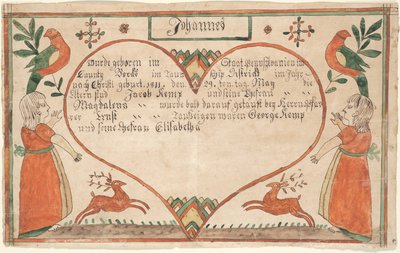 Johannes
wurde geboren im Staat Pennsylvanien im
County Berks im Taun schip District im Jahr
nach Christi geburt 1811. den 29. ten tag May die
Eltern sind Jacob Kemp und seine Ehefrau
Magdalena wurde bald darauf getauft bey Herrn Pfar
rer Ernst Taufzeigen waren George Kemp
und seine Ehefrau Elisabetha